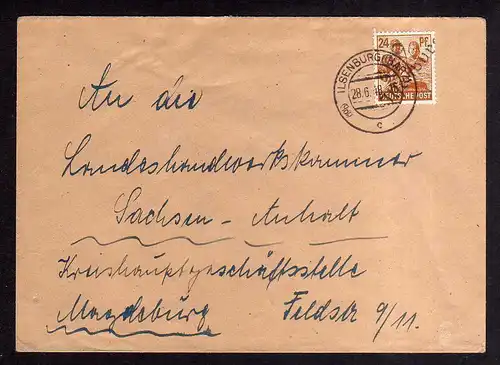 24 PF
ILSENBURG (HARZ)
28.6.48
c
DEUTSCHE POST
An die
Landeshandwerkskammer
Sachsen - Anhalt
Kreishauptgeschäftsstelle
Magdeburg Feldstr 9/11.